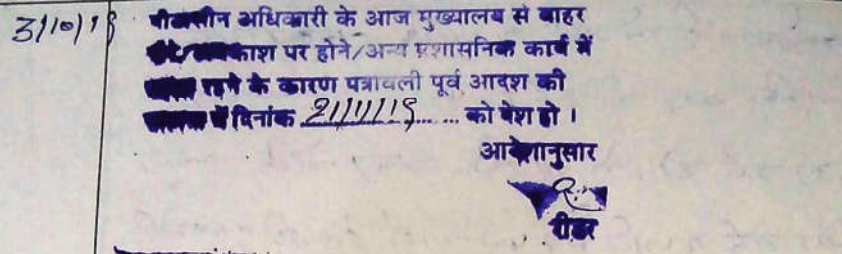 3/10/19 पीठासीन अधिकारी के आज मुख्यालय से बाहर
अवकाश पर होने/अन्य प्रशासनिक कार्य में
रहने के कारण पत्रावली पूर्व आदश की
में दिनांक 21/11/19 को पेश हो ।
आदेशानुसार
रीडर